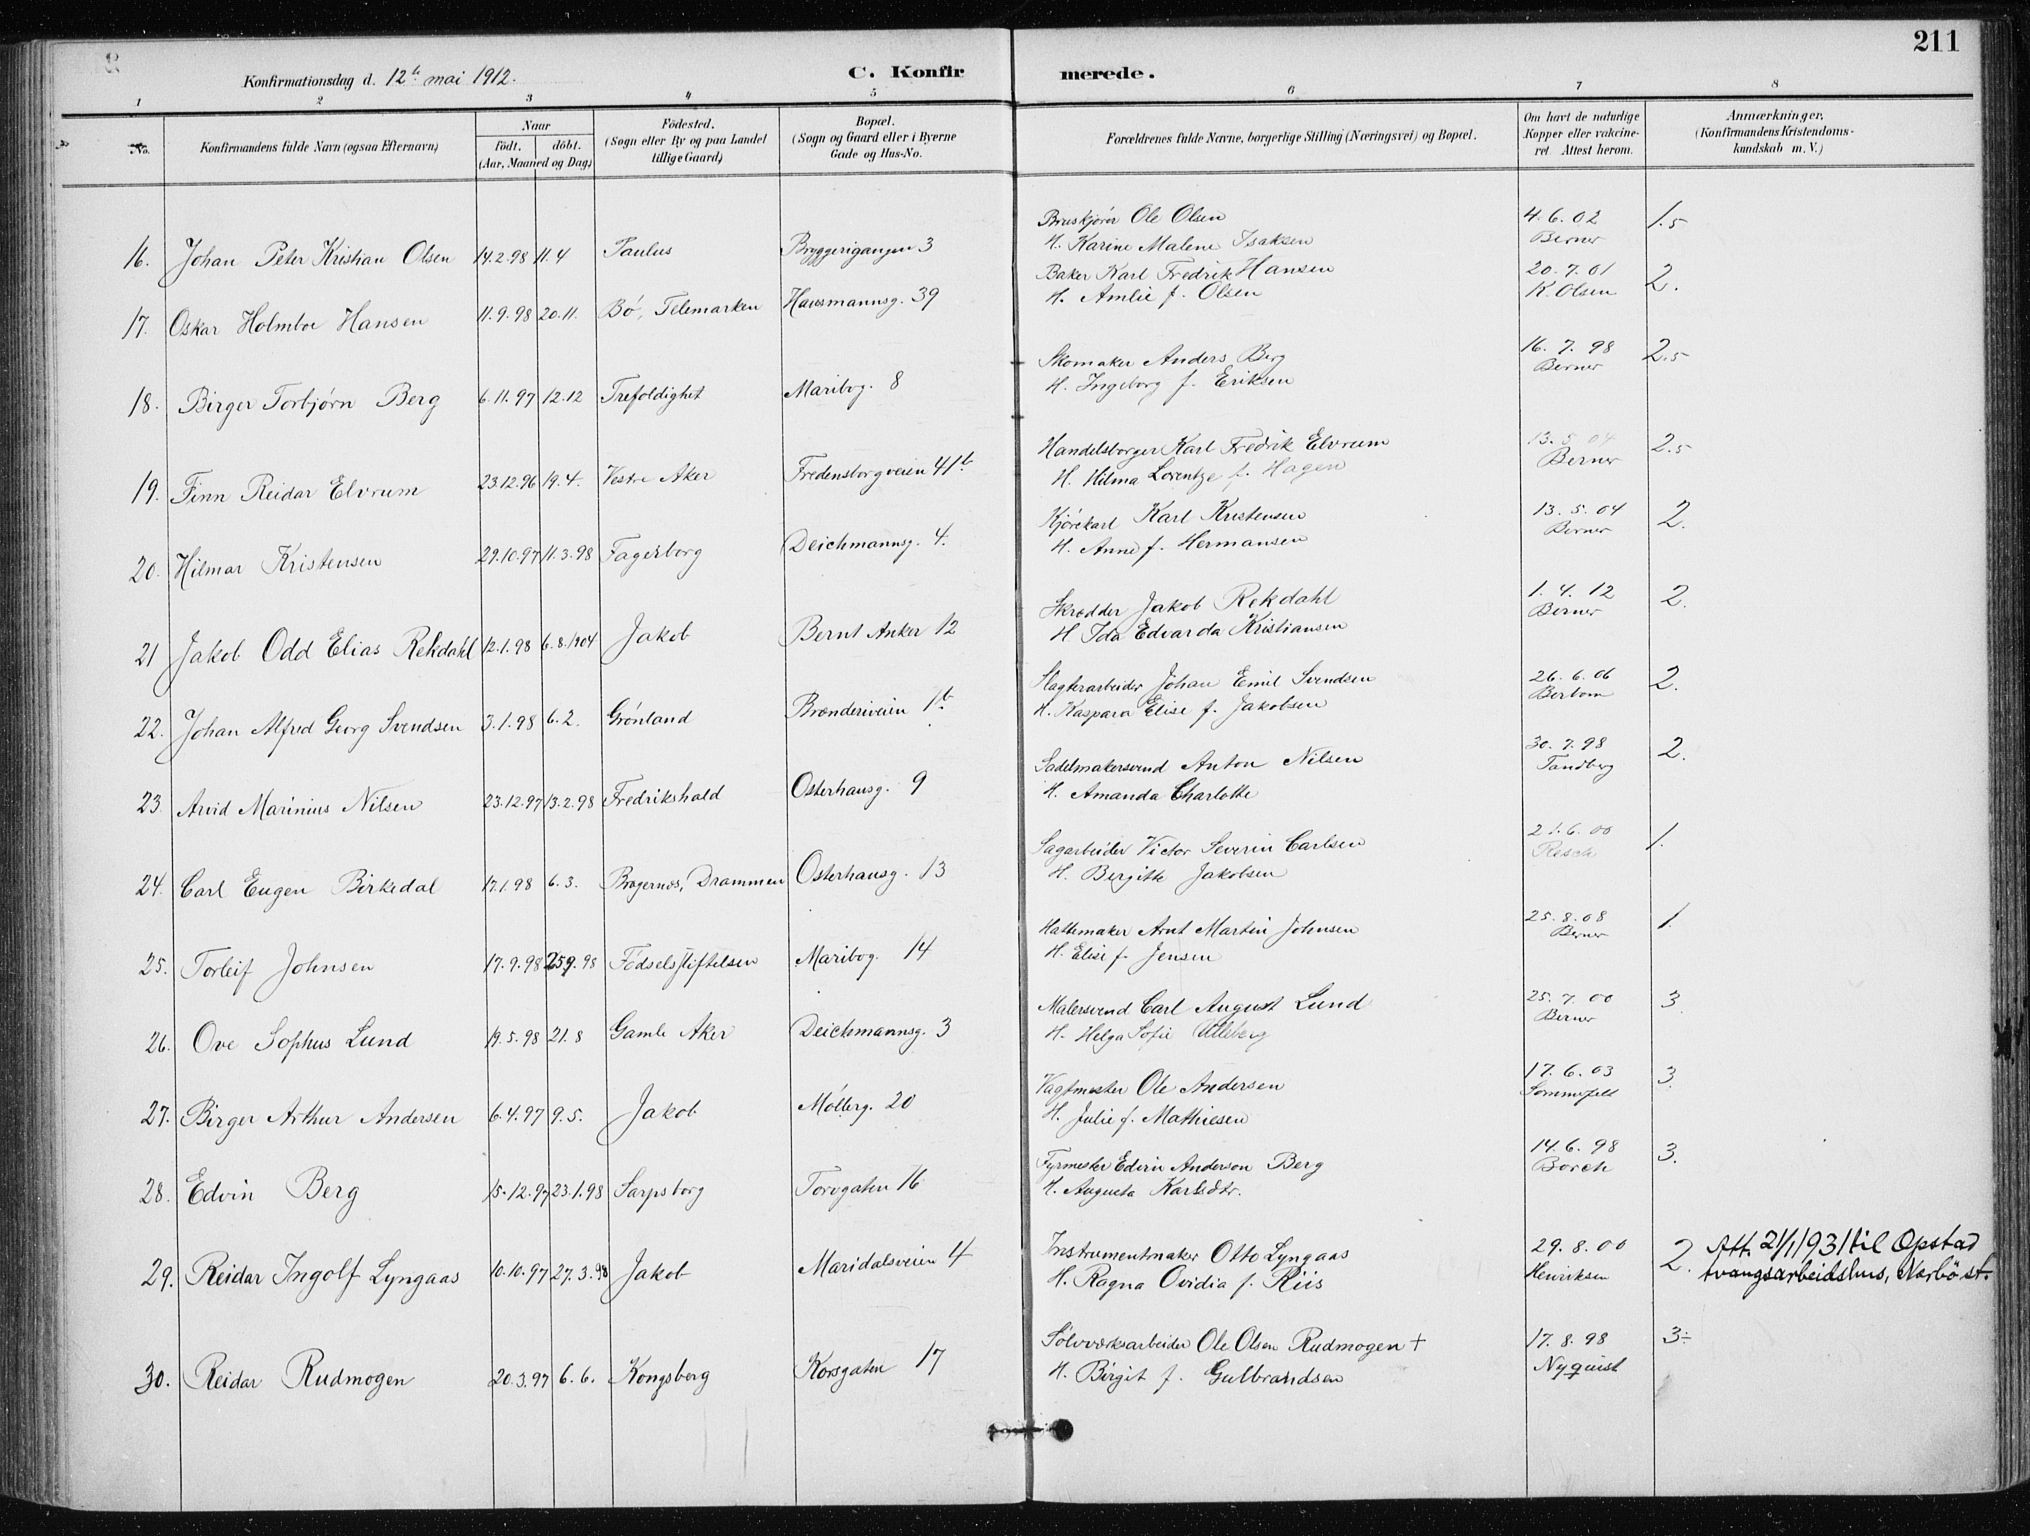 211
Konfirmationsdag d. 12te mai 1912. C. Konfirmerede.
1 2 3 4 5 6 7 8
No. Konfirmandens fulde Navn (ogsaa Efternavn) Naar Födt. döbt. (Aar, Maaned og Dag) Födested. (Sogn eller By og paa Landet tillige Gaard) Bopæl. (Sogn og Gaard eller i Byerne Gade og Hus-No. Forældrenes fulde Navne, borgerlige Stilling (Næringsvei) og Bopæl. Om havt de naturlige Kopper eller vakcineret. Attest herom. Anmærkninger. (Konfirmandens Kristendomskundskab m. V.)
16. Johan Peter Kristian Olsen 14.2.98 11.4 Paulus Bryggerigangen 3 Bruskjører Ole Olsen 4.6.02 1.5
H. Karine Malene Isaksen Berner
17. Oskar Holmboe Hansen 11.9.98 20.11. Bö, Telemarken Hausmannsg. 39 Baker Karl Fredrik Hansen 20.7.01 2.
H. Amlie f. Olsen K. Olsen
18. Birger Torbjørn Berg 6.11.97 12.12 Trefoldighet Maribog. 8 Skomaker Anders Berg 16.7.98 2.5
H. Ingeborg f. Eriksen Berner
19. Finn Reidar Elvrum 23.12.96 19.4. Vestre Aker Fredensborgveien 41b Handelsborger Karl Fredrik Elvrum 13.5.04 2.5
H. Hilma Lorentze f. Hagen Berner
20. Hilmar Kristensen 29.10.97 11.3.98 Fagerborg Deichmannsg. 4. Kjörekarl Karl Kristensen 13.5.04 2.
H. Anne f. Hermansen Berner
21 Jakob Odd Elias Rekdahl 12.1.98 6.8.1904 Jakob Bernt Anker 12 Skrædder Jakob Rekdahl 1.4.12 2.
H Ida Edvarda Kristiansen Berner
22. Johan Alfred Georg Svendsen 3.1.98 6.2. Grönland Brænderiveien 1b Slagterarbeider Johan Emil Svendsen 26.6.06 2.
H. Kaspara Elise f. Jakobsen Bertom
23. Arvid Marinius Nilsen 23.12.97 13.2.98 Fredrikshald Osterhausg. 9 Sadelmakersvend Anton Nilsen 30.7.98 2.
H. Amanda Charlotte Tandberg
24. Carl Eugen Birkedal 17.1.98 6.3. Bragernes, Drammen Osterhausg. 13 Sagarbeider Victor Severin Carlsen 21.6.00 1.
H. Birgitte Jakobsen Resch
25. Torleif Johnsen 17.9.98 25.9.98 Födselsstiftelsen Maribog. 14 Hattemaker Arnt Martin Johnsen 25.8.08 1.
H. Elise f. Jensen Berner
26. Ove Sophus Lund 19.5.98 21.8 Gamle Aker Deichmannsg. 3 Malersvend Carl August Lund 25.7.00 3.
H. Helga Sofie Ulleberg Berner
27. Birger Arthur Andersen 6.4.97 9.5. Jakob Möllerg. 20 Vagtmester Ole Andersen 17.6.03 3.
H. Julie f. Mathiesen Sommerfelt
28. Edvin Berg 15.12.97 23.1.98 Sarpsborg Torvgaten 16 Fyrmester Edvin Anderson Berg 14.6.98 3.
H. Augusta Karlsdtr. Borch
29. Reidar Ingolf Lyngaas 10.10.97 27.3.98 Jakob Maridalsveien 4 Instrumentmaker Otto Lyngaas 29.8.00 2. Att. 21/1 1931 til Opstad
H. Ragna Ovidia f. Riis Henriksen tvangsarbeidshus, Nærbö st.
30. Reidar Rudmogen 20.3.97 6.6. Kongsberg Korsgaten 17 Sølvværksarbeider Ole Olsen Rudmogen + 17.8.98 3÷
H. Birgit f. Gulbrandsen Nyquist